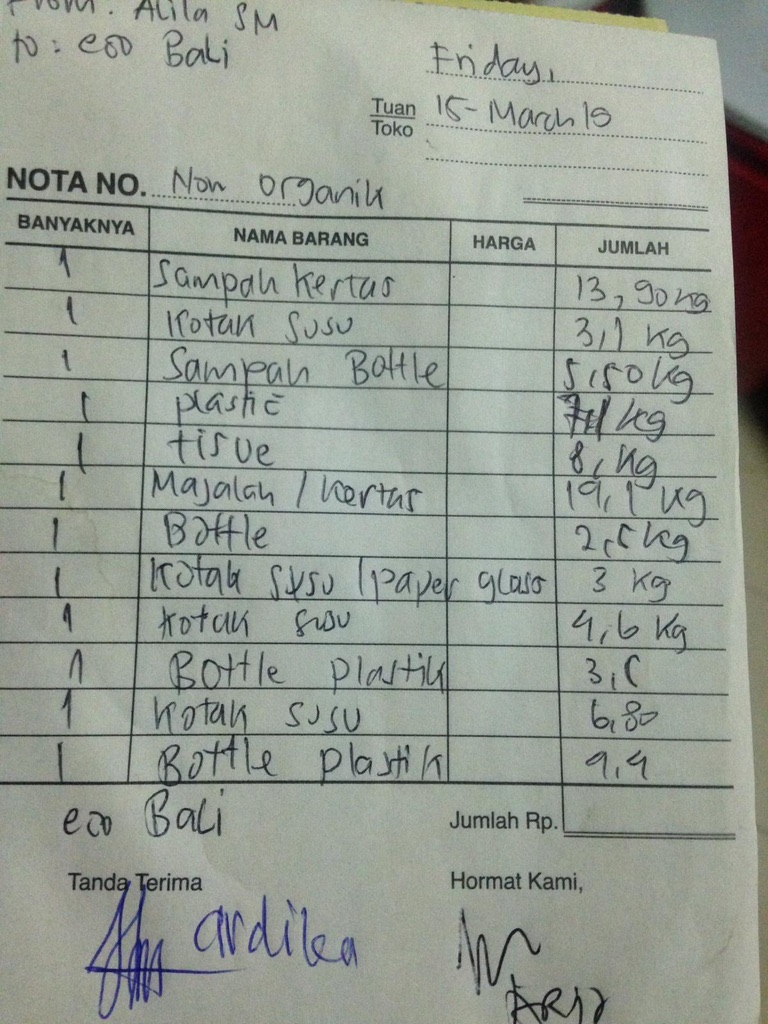 From: Alila SM
to: eco Bali
Friday,
Tuan
Toko 15-March 19
NOTA NO. Non organik
BANYAKNYA NAMA BARANG HARGA JUMLAH
1 Sampah kertas 13,90 kg
1 Kotak susu 3,1 kg
1 Sampah Bottle 5,50 kg
1 plastic kg
1 tisue 8, kg
1 Majalah / kertas 19,1 kg
1 Bottle 2,5 kg
1 Kotak susu / paper glass 3 kg
1 Kotak susu 4,6 kg
1 Bottle plastik 3,5
1 Kotak susu 6,80
1 Bottle plastik 4,4
eco Bali Jumlah Rp.
Tanda Terima Hormat Kami,
ardika